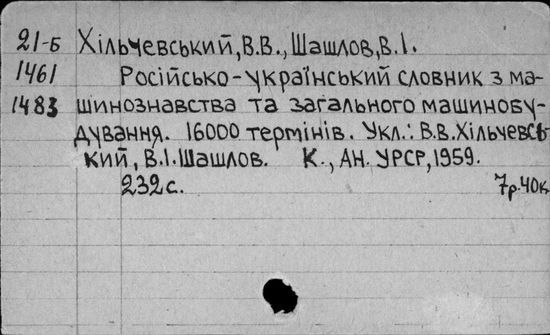 21-Б Хільчевський, В.В., Шашлов, В.І.
1461 Російсько-український словник з ма-
1483 шинознавства та загального машинобу-
дування. 16000 термінів. Укл.: В.В.Хільчевсь
кий, В.І.Шашлов. К., АН. УРСР, 1959.
232 с. 7р.40к